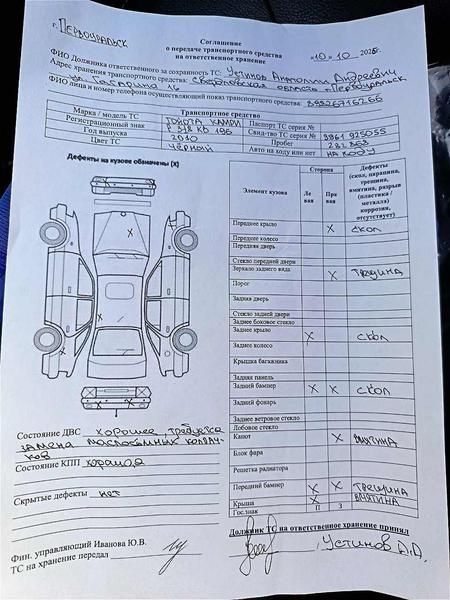 г. Первоуральск
Соглашение
о передаче транспортного средства
на ответственное хранение
«10» 10 2025г.
ФИО Должника ответственного за сохранность ТС: Устинов Анатолий Андреевич
Адрес хранения транспортного средства: Свердловская область г. Первоуральск
ул Гагарина 16
ФИО лица и номер телефона осуществляющий показ транспортного средства: 89326716266
Транспортное средство
Марка / модель ТС TOYOTA КАМРИ Паспорт ТС серия №
Регистрационный знак Р 378 КО 196 Свид-тво ТС серия № 9961 925055
Год выпуска 2010 Пробег 282 863
Цвет ТС ЧЁРНЫЙ Авто на ходу или нет НА ХОДУ
Дефекты на кузове обозначены (X)
Элемент кузова Сторона Дефекты
Ле вая Пра вая (скол, царапина, трещина, вмятина, разрыв (пластика / металла) коррозия, отсутствует)
Переднее крыло X СКОЛ
Переднее колесо
Передняя дверь
Стекло передней двери
Зеркало заднего вида X ТРЕЩИНА
Порог
Задняя дверь
Стекло задней двери
Заднее боковое стекло
Заднее крыло X СКОЛ
Заднее колесо
Крышка багажника
Задняя панель
Задний бампер X X СКОЛ
Задний фонарь
Заднее ветровое стекло
Лобовое стекло
Капот X ВМЯТИНА
Блок фара
Решетка радиатора
Передний бампер X X ТРЕЩИНА
Крыша X ВМЯТИНА
Гос.знак П З
Состояние ДВС хорошее, требуется
замена маслосъемных колпач-
ков
Состояние КПП хорошая
Скрытые дефекты нет
Должник ТС на ответственное хранение принял
Фин. управляющий Иванова Ю.В.
ТС на хранение передал
Устинов А.А.